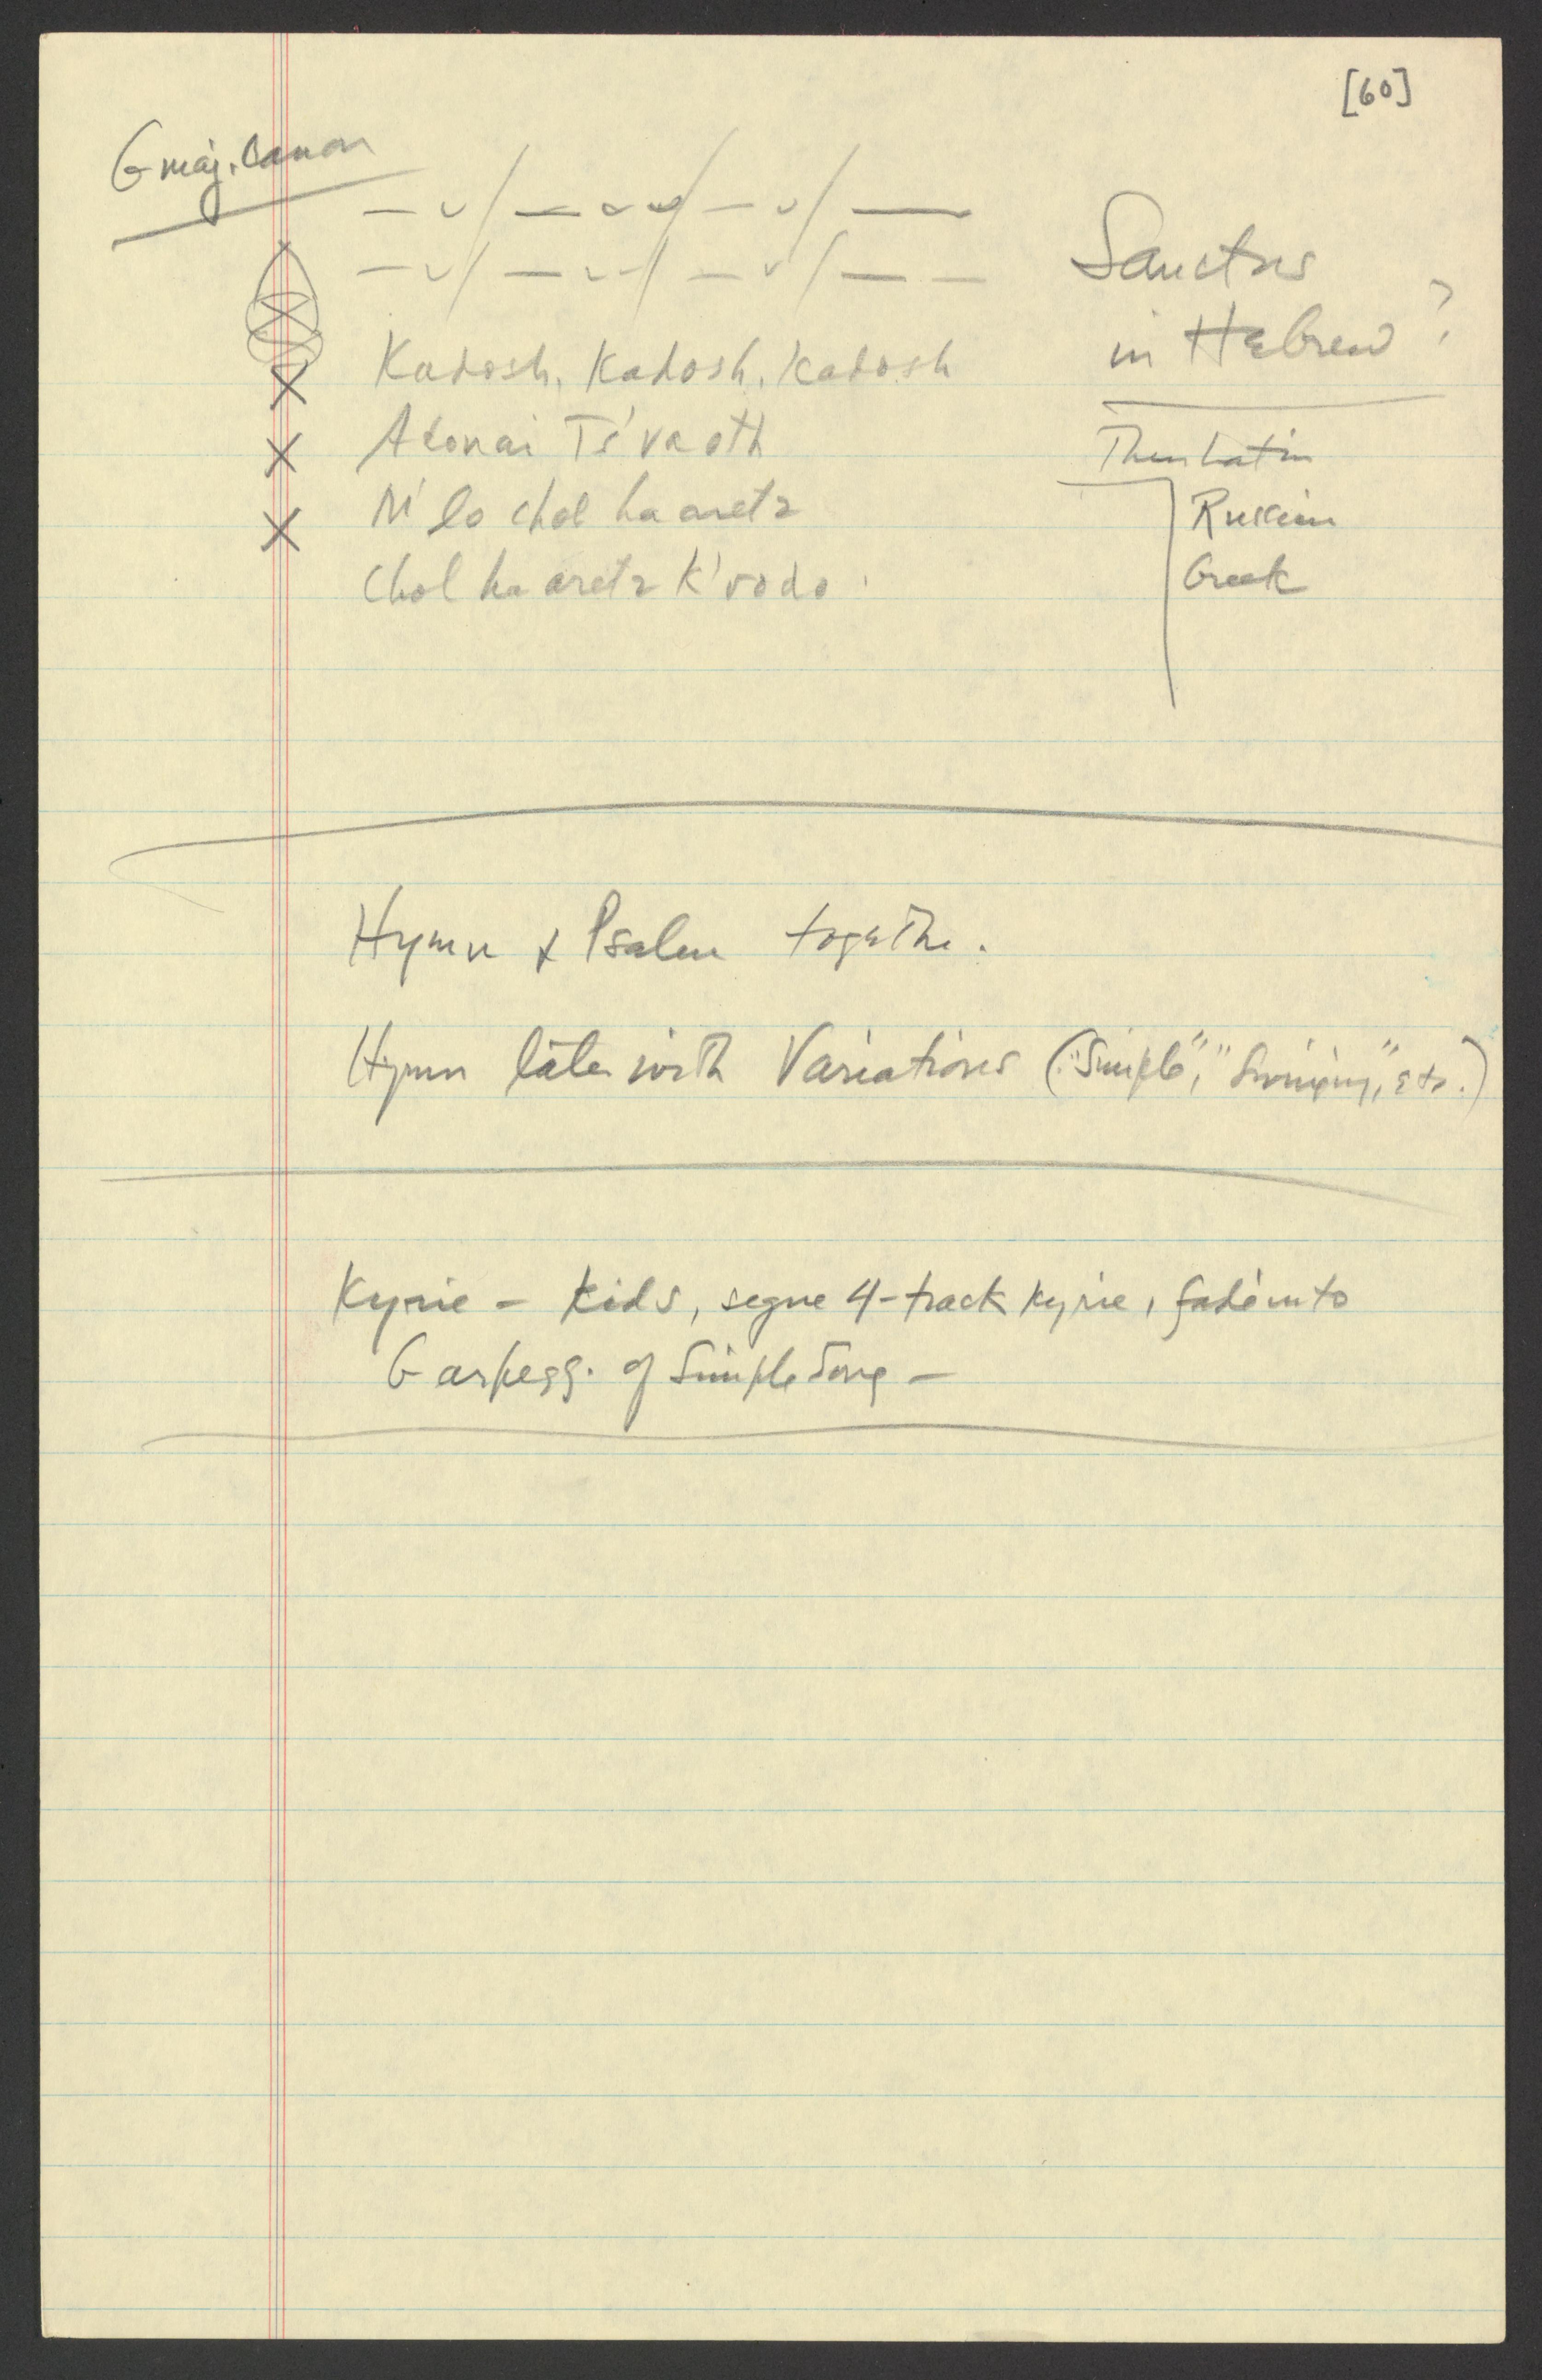 [60]
G maj. Canon
– ᴗ / – ᴗ ᴗ / – ᴗ / —
– ᴗ / – ᴗ – / – ᴗ / – –
Sanctus
in Hebrew ?
Kadosh, Kadosh, Kadosh
Adonai Ts'vaoth
M'lo chol haaretz
Chol haaretz K'vodo.
Then Latin
Russian
Greek
Hymn & Psalm together.
Hymn later with Variations ("Simple," "Swinging," etc.)
Kyrie – Kids, segue 4-track Kyrie, fade into
G arpegg. of Simple Song –